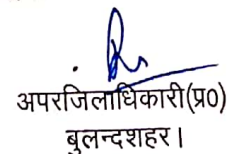 अपरजिलाधिकारी(प्र०)
बुलन्दशहर।